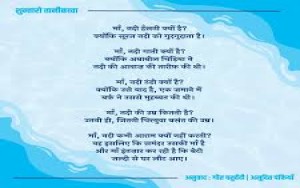 शुन्तारो तानीकावा
माँ, नदी हँसती क्यों है?
क्योंकि सूरज नदी को गुदगुदाता है।
माँ, नदी गाती क्यों है?
क्योंकि अबाबील चिड़िया ने
नदी की आवाज़ की तारीफ़ की थी।
माँ, नदी ठंडी क्यों है?
क्योंकि उसे याद है, एक जमाने में
बर्फ़ ने उससे मुहब्बत की थी।
माँ, नदी की उम्र कितनी है?
उतनी ही, जितनी चिरयुवा वसंत की उम्र।
माँ, नदी कभी आराम क्यों नहीं करती?
वह इसलिए कि समंदर उसकी माँ है
और माँ इंतज़ार कर रही है कि बेटी
जल्दी से घर लौट आए।
अनुवाद : गीत चतुर्वेदी |